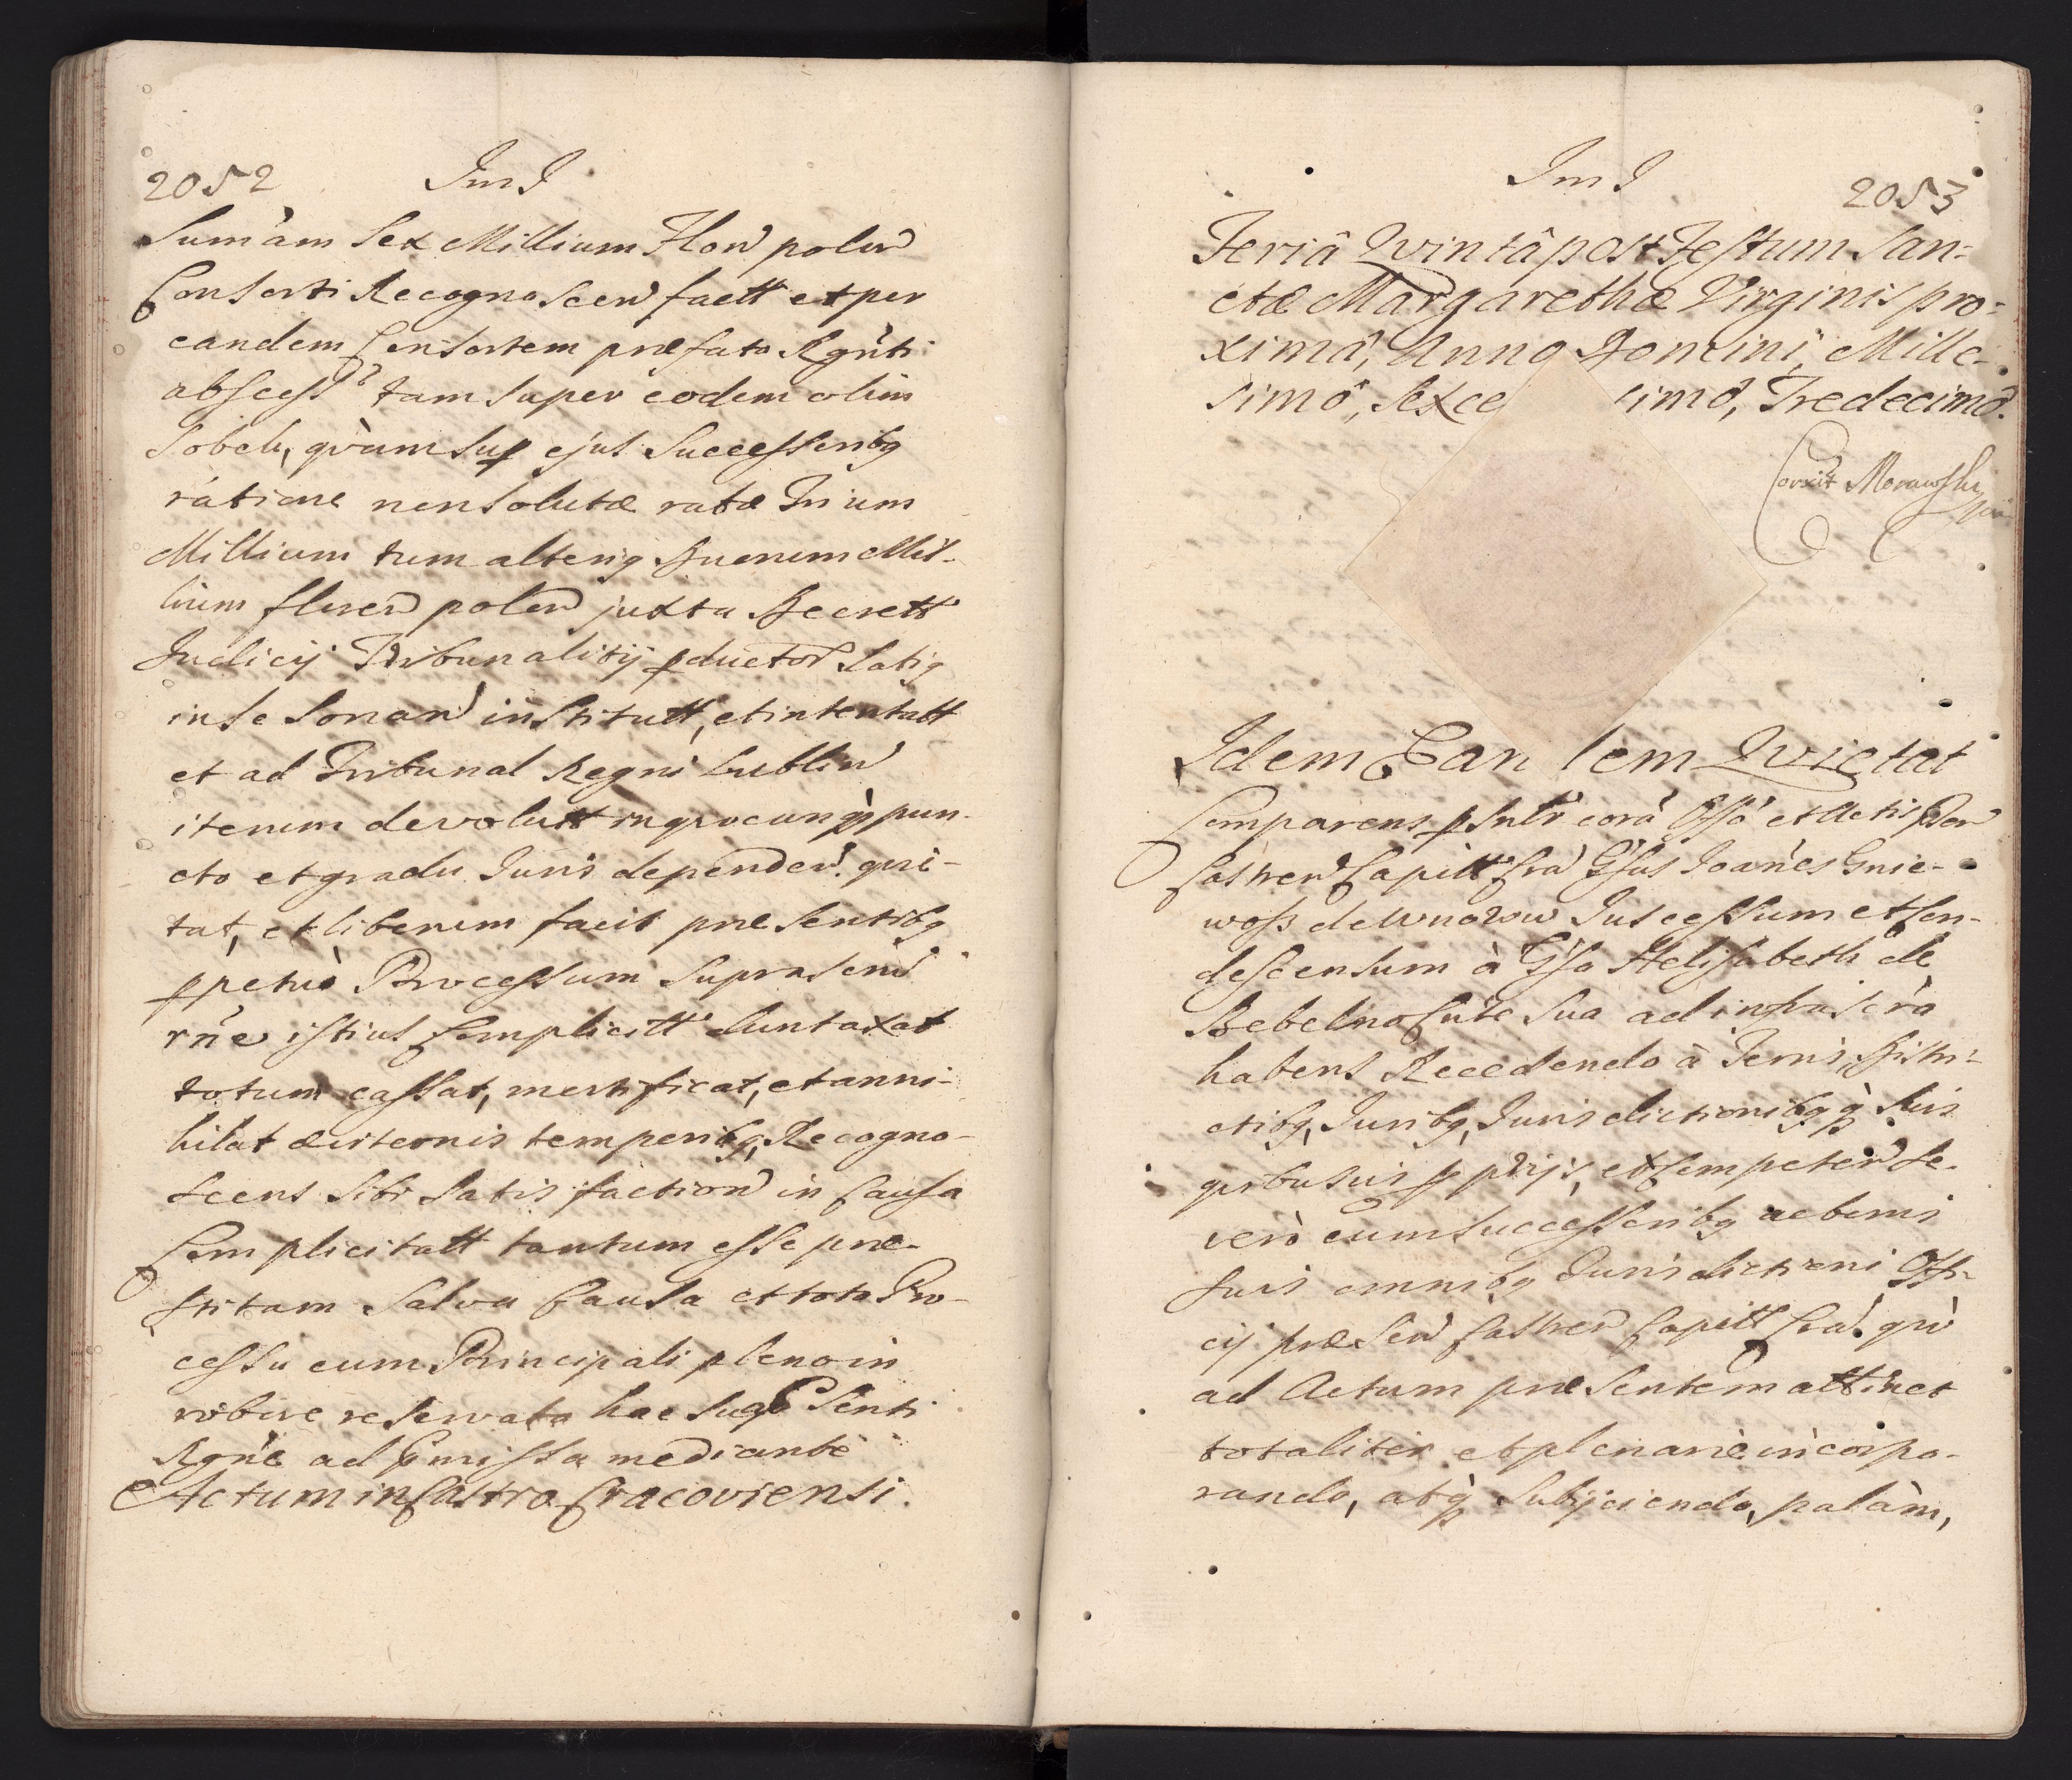 2052 Im I
Sumàm Sex Millium Flor̃ poloñ
Consorti Recognoscen̄ factt et per
eandem Consortem præfato Rgñti
abscess tam super eodem olim
Sobek, qvàm sup ejus Successoribg
ratione non solutæ ratæ Trium
Millium tum alteriq Buorum Mil-
lium floren̄ polon̄ juxta Decrett
Judicij Tribunalitij pductor̄ latiq
in se sonan̄ institutt, et intentatt
et ad Tribunal Regni Lublin̄
iterum devolutt in qvocunqꝫ pun-
cto et gradu Juris dependen̄. qvi-
tat, et liberum facit præsentibg
ppetuò Processum suprascrip̄
rñe istius Complicitt duntaxat
totum cassat, mortificat, et anni-
hilat æviternis temporibg, Recogno-
scens sibi satis faction̄ in Causa
Complicitatt tantum esse præ-
stitam Salva Causa et toto Pro-
cessu cum Principali pleno in
robore reservato hac sua Psenti
Rgñe ad Pmissa mediante
Actum in Castro Cracoviensi.
Im I 2053
Feriâ Qvintâ post Festum San-
ctæ Margarethæ Virginis pro-
ximâ, Anno Domini, Mille-
simô, Sexce simô, Tredecimô.
Corxit Morawski
Idem Ean dem Qvietat
Comparens psntr̄ corā Offō et Actis Pn̄
Castren̄ Capitt Cra G̃sus Joañes Gnie-
woß de Wnorow Jus cessum et Con-
descensum à G̃sa Helisabeth de
Bebelno Cn̄te sua ad infrascr̄a
habens Recedendo à Terris, Distri-
ctibg, Juribg, Jurisdictionibgqꝫ suis
qvibusvis pprijs, et Competen̄ se
verò cum Successoribg ac bonis
suis omnibg Jurisdictioni Offi-
cij præsen̄ Castren̄ Capitt Cra. qvò
ad Actum præsentem attinet
totaliter et plenariè incorpo-
rando, atqꝫ subijciendo, palàm,